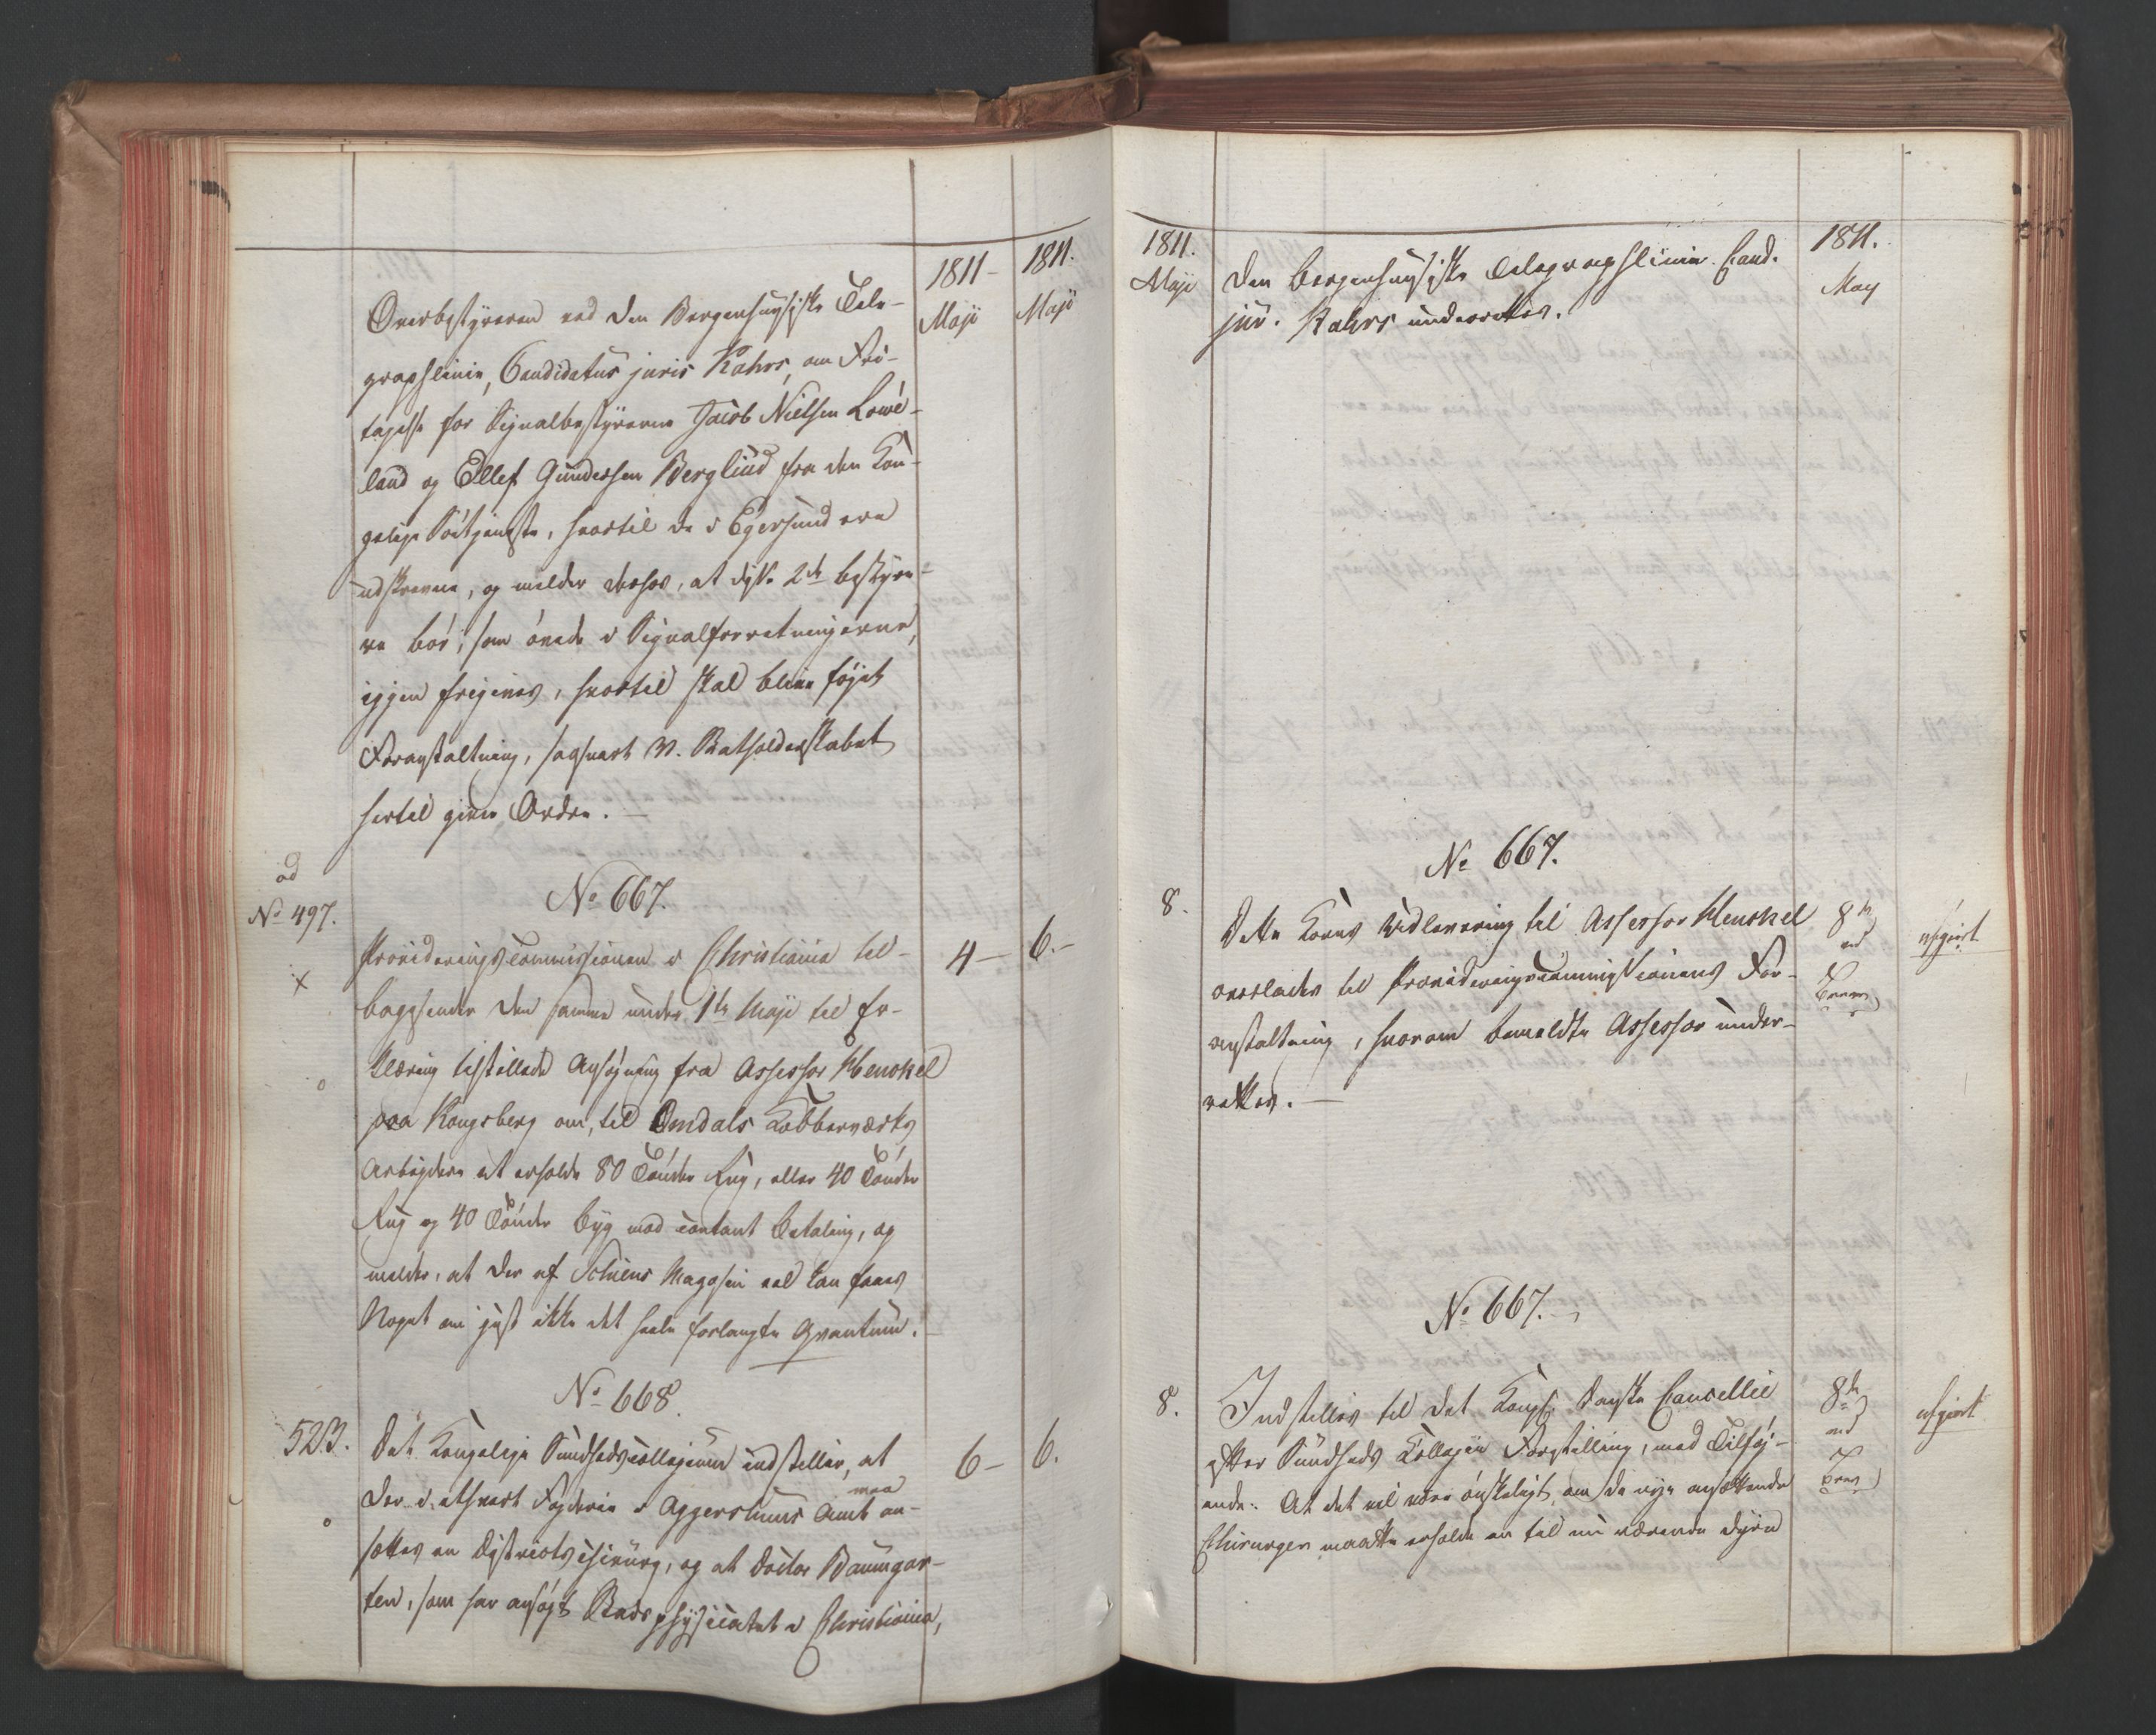 1811-
Maji
1811.
Maji
Overbestÿreren ved den Bergenhuusiske Tele-
graphlinie, Candidatus juris Kahrs, om Fri-
tagelse for Signalbestÿrerne Jacob Nielsen Lowe-
land og Ellef Gundersen Berglund fra den Kon-
gelige Söetjeneste, hvortil de i Egersund ere
udskrevne, og melder derhos, at disse 2de bestÿre-
re bör, som övede i Signalforretningerne,
igjen frigives, hvortil skal blive föjet
Foranstaltning, saasnart V. Statholderskabet
hertil giver Ordre. —
ad
No 497.
x
o
No 667.
Provideringscommissionen i Christiania til-
bagesender den samme under 1te Maji til Er-
klæring tilstillede Ansögning fra Assessor Henckel
paa Kongsberg om, til Omdals Kobberværks
Arbejdere at erholde 80 Tönder Rug, eller 40 Tönder
Rug og 40 Tönder Byg mod contant Betaling, og
melder, at der af Schiens Magasin vel kan faaes
Noget om just ikke det heele forlangte Qvantum.
4-
6.-
No 668.
523.
o
Det Kongelige Sundhedscollegium indstiller, at
der i ethvert Fogderie i Aggershuus Amt maa an-
sættes en Districtschirurg, og at Doctor Baumgar-
ten, som har ansögt Stadsphÿsicatet i Christiania,
6-
6.
1811.
Maji
Den bergenhuusiske Telegraphlinie Cand.
jur. Kahrs underrettes.
1811.
May
No 667.
8.
Dette Korns Udlevering til Assessor Henckel
overlades til Provideringscommissionens For-
anstaltning, hvorom bemeldte Assessor under-
rettes. —
8de
ad
afgiort
No 667.
8.
Indstilles til det Kongl: Danske Cancellie
efter Sundheds Collegii Forestilling, med Tilföj-
ende: At det vil være önskeligt, om de nye ansættende
Chirurger maatte erholde en til nu værende dÿre
8de
ad
afgiort